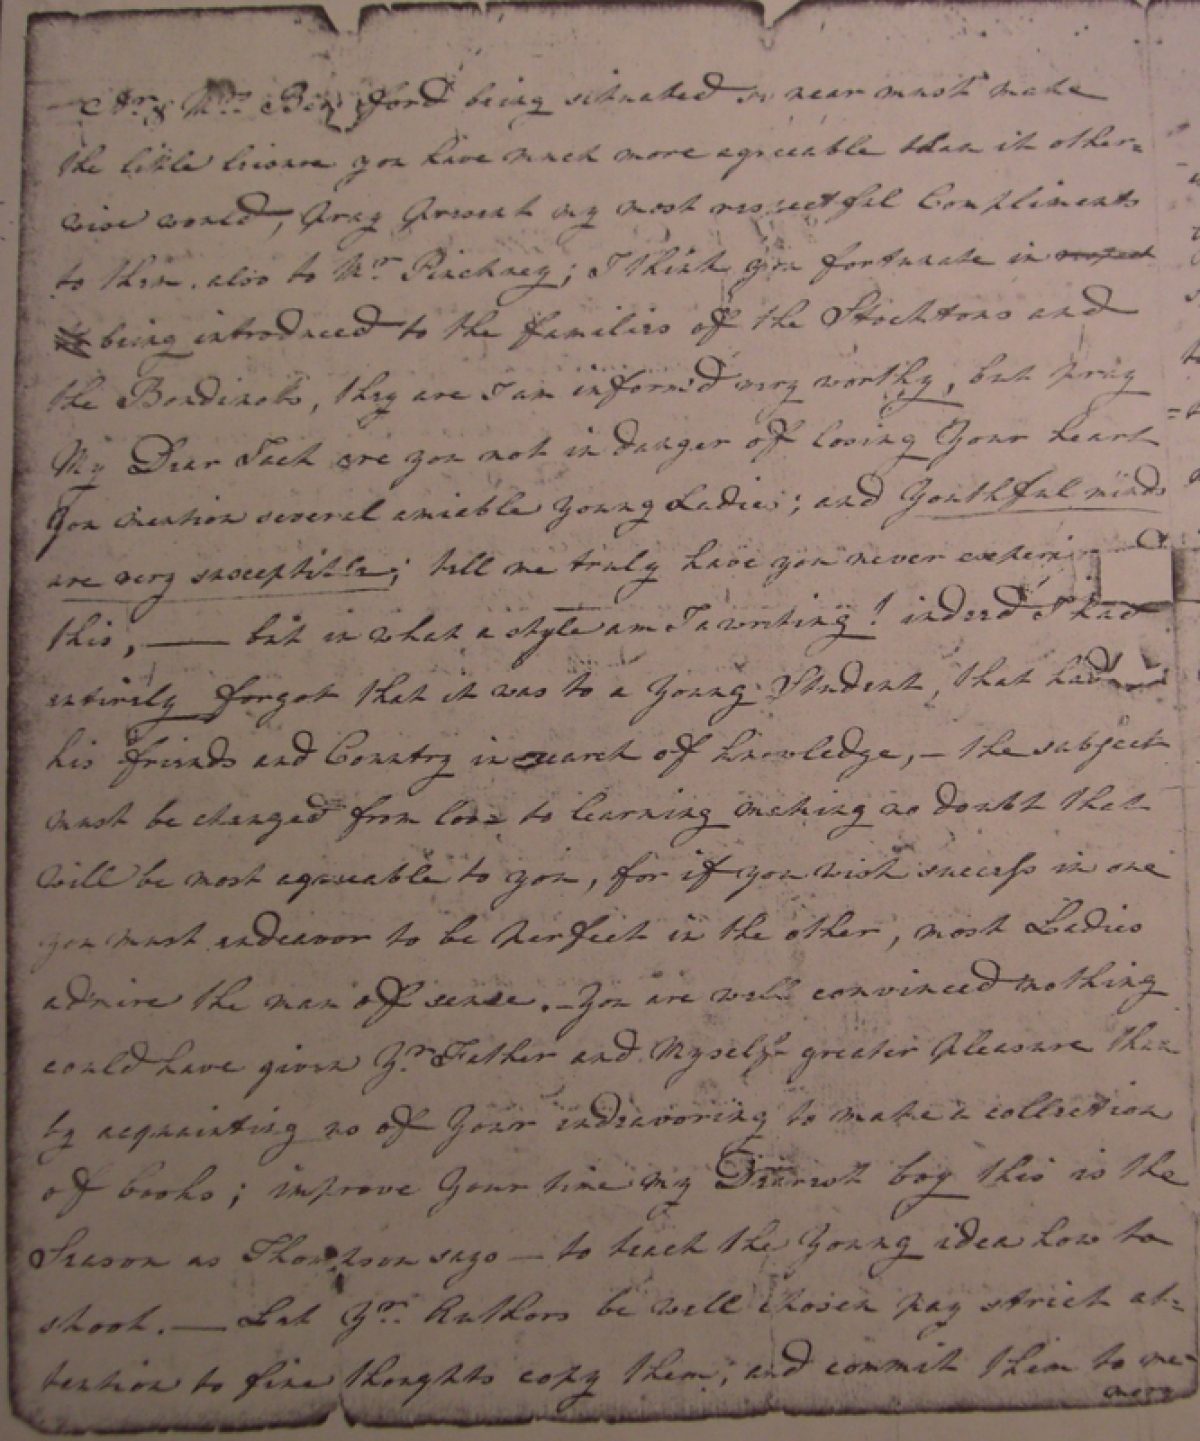 Mr. & Mrs. Beresford being situated so near must make
the little leisure you have much more agreeable than it other=
wise would, Pray Present my most respectful Compliments
to them. also to Mr. Pinckney; I think you fortunate in
being introduced to the families of the Stocktons and
the Boudinots, they are I am inform'd very worthy, but pray
My Dear Jack are you not in danger of losing Your heart
You mention several amiable Young Ladies; and Youthful minds
are very susceptible; tell me truly have you never
this, — but in what a style am I a writing! indeed I had
entirely forgot that it was to a Young Student, that had
his friends and Country in search of knowledge, — the subject
must be changed from love to learning making no doubt that
will be most agreeable to you, for if you wish success in one
you must endeavor to be perfect in the other, most Ladies
admire the man of sense. — You are well convinced nothing
could have given Yr. Father and Myself greater Pleasure than
by acquainting us of Your endeavoring to make a collection
of books; improve Your time my Dearest boy this is the
Season as Thompson says — to teach the Young idea how to
shoot. — Let Yr. Authors be well chosen pay strict at=
tention to fine thoughts copy them, and commit them to me=
mory